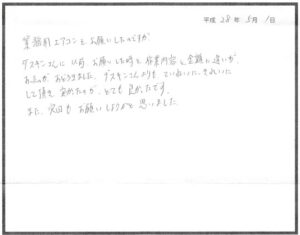 平成 28年 5月 1日
業務用エアコンをお願いしたのですが
ダスキンさんに以前、お願いした時と作業内容と金額に違いが
あったが おどろきました。ダスキンさんよりも ていねいに、きれいに
して頂き 安かったが、とても 良かったです。
また、次回も お願いしようかと 思いました